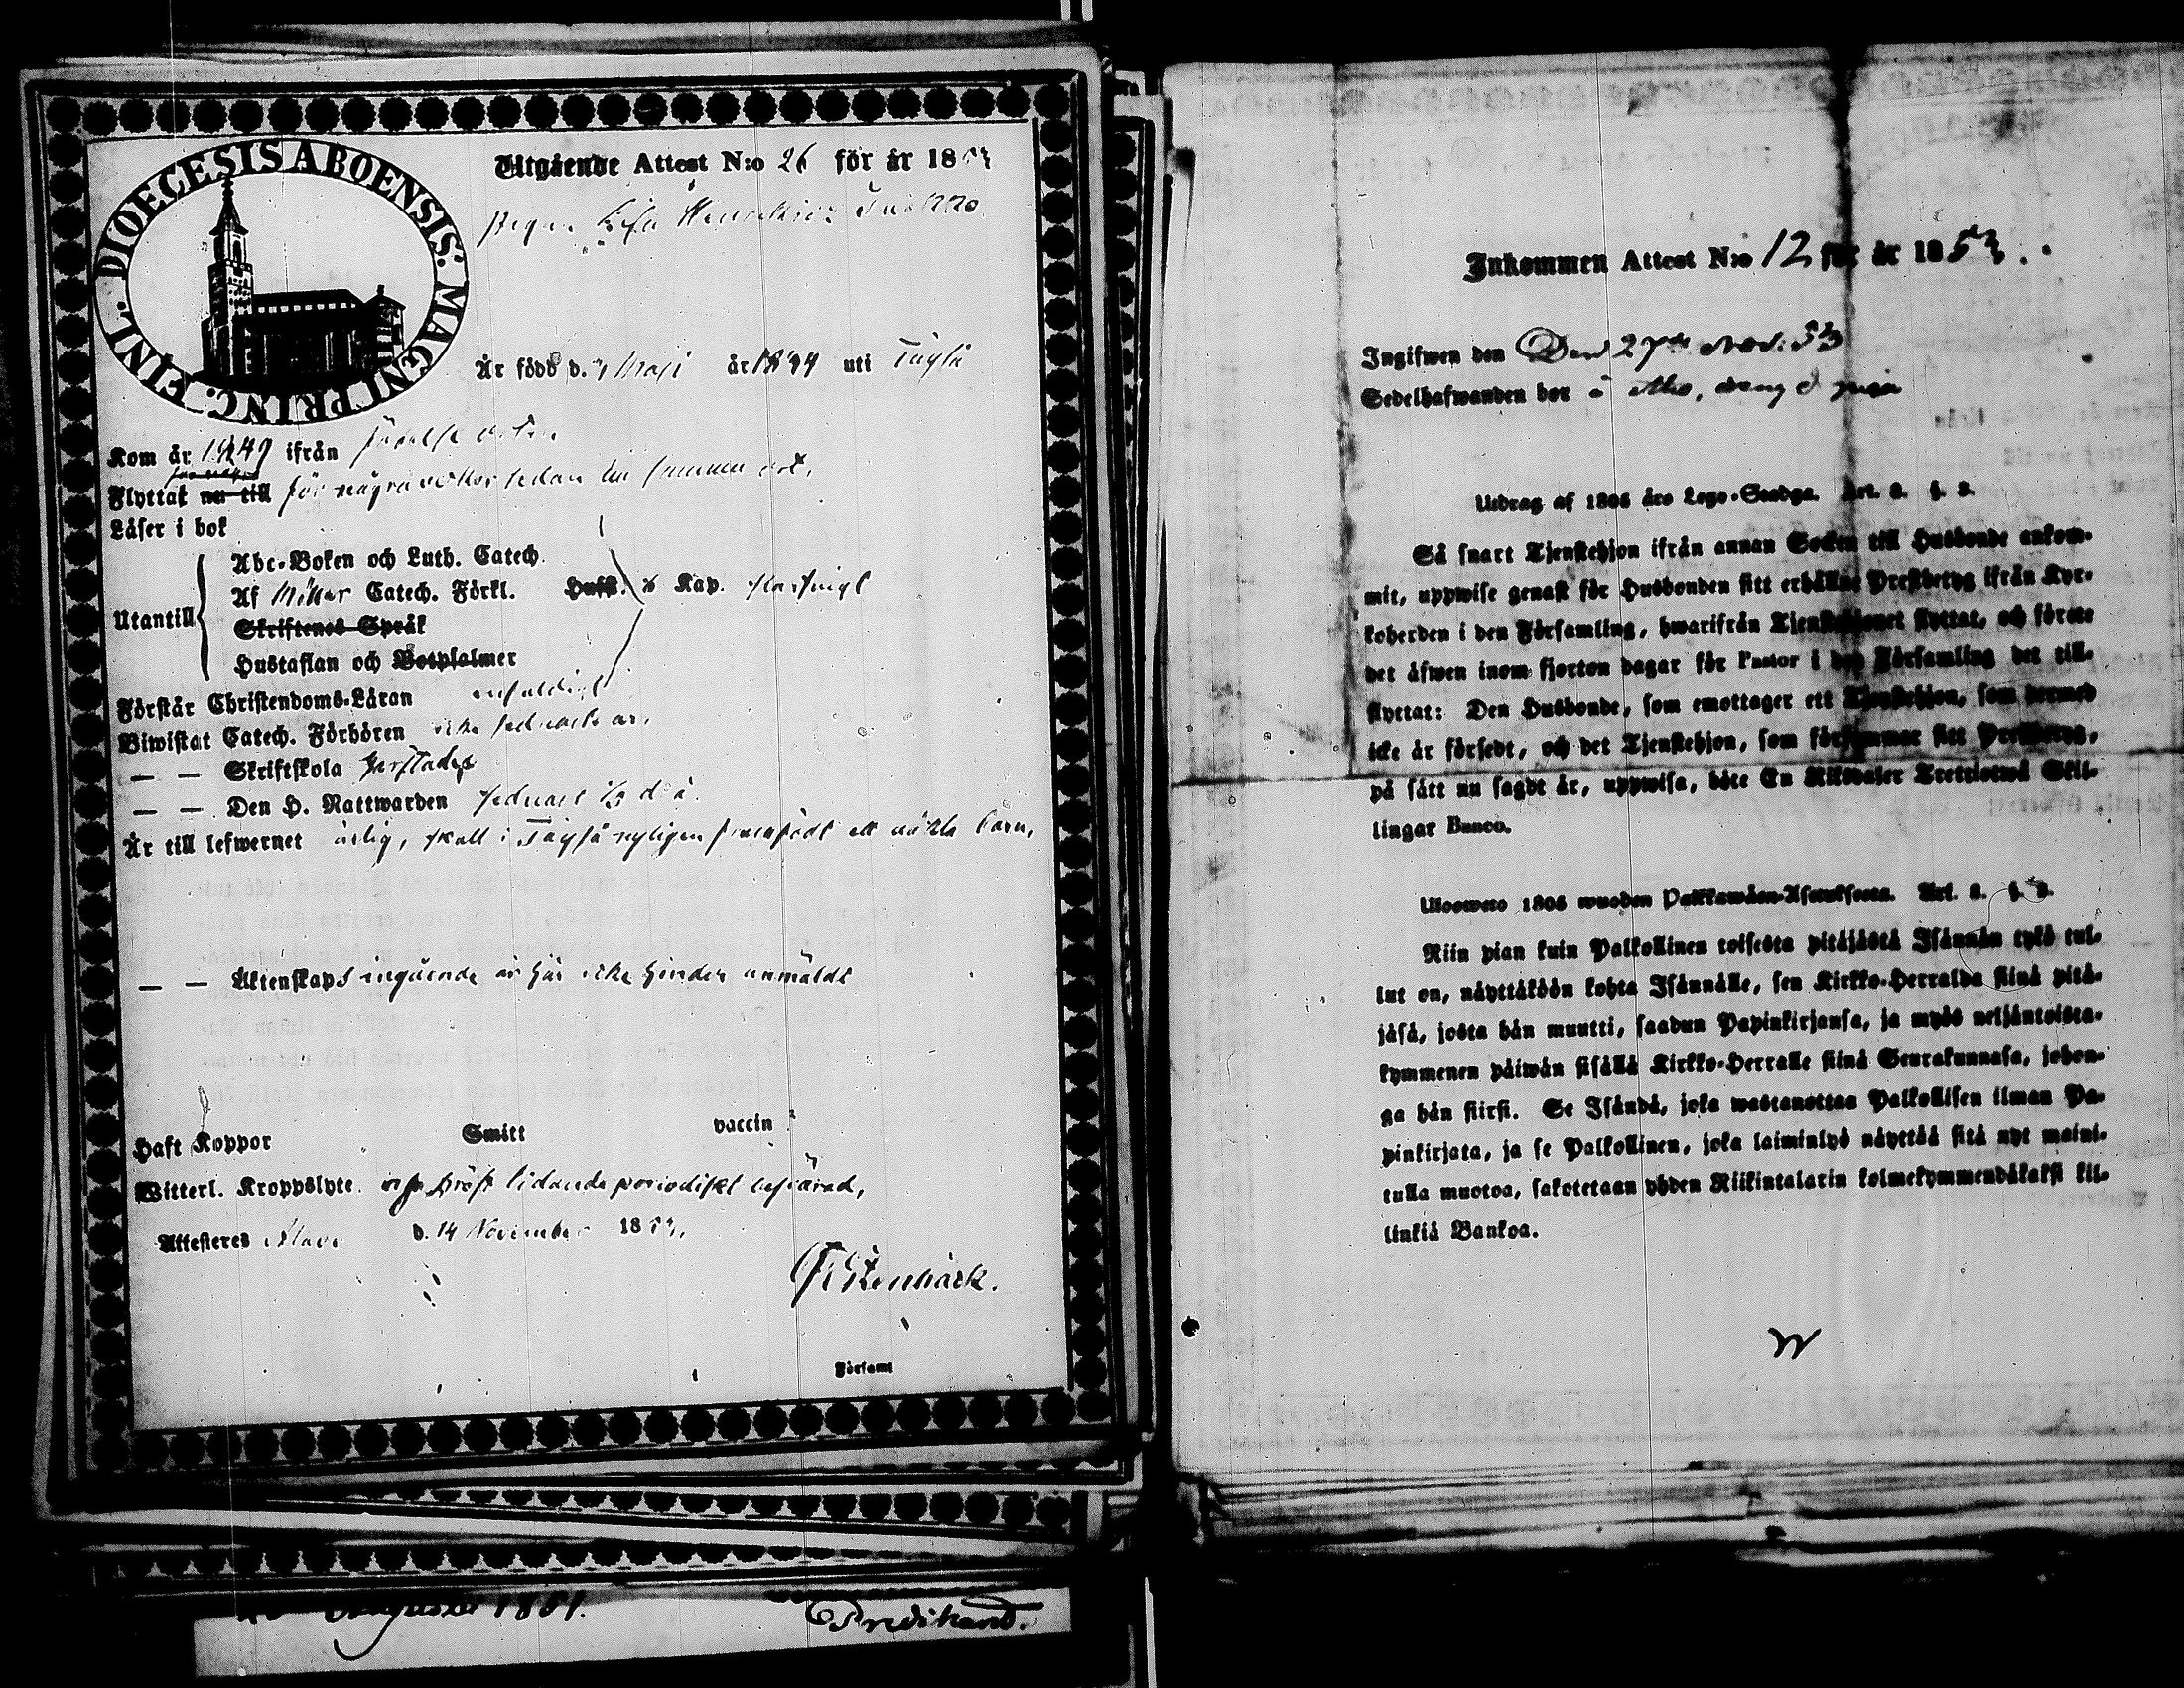 DIOECESIS ABOENSIS. MAGNI PRINC. FINL.
Utgående Attest N:o 26 för år 1853
Är född d. 7 Maji år 18 uti Töysä
Kom år 1849 ifrån födelse orten
Flyttat nu till för några veckor sedan till samma ort,
Läser i bok
Utantill
Abc-Boken och Luth. Catech.
Af Möller Catech. Förkl. Kap. 
Skriftenes Språk
Hustaflan och Botpsalmer
Förstår Christendoms-Läran enfaldigt
Biwistat Catech. Förhören icke sednaste år.
— — Skriftskola härstädes
— — Den H. Nattwarden sednast
Är till lefwernet ärlig, skall i Töysä nyligen framfödt ett oäkta barn,
— — Äktenskaps ingående är här icke hinder anmäldt
Haft Koppor Smitt vaccin
Witterl. Kroppslyte lidande periodiskt
Attesteres Alavo d. 14 November 1853,
Församl
Augusti 1851. Predikand.
Inkommen Attest N:o 12 för år 1853.
Ingifwen den Den 27de Nov. 53
Sedelhafwanden bor å Aho, dräng d piga
Utdrag af 1805 års Lego-Stadga. Art. 2. §. 2.
Så snart Tjenstehjon ifrån annan Socken till Husbonde ankom-
mit, uppwise genast för Husbonden sitt erhållne Prestbetyg ifrån Kyr-
koherden i den Församling, hwarifrån Tjenstehjonet flyttat, och förete
det äfwen inom fjorton dagar för Pastor i den Församling det till-
flyttat: Den Husbonde, som emottager ett Tjenstehjon, som dermed
icke är försedt, och det Tjenstehjon, som försummar sitt Prestbetyg,
på sätt nu sagdt är, uppwisa, böte En Riksdaler Tretriotwå Skil-
lingar Banco.
Uloswero 1805 wuoden Palkkawäen-Asetuksesta. Art. 2. §. 2.
Niin pian kuin Palkollinen toisesta pitäjästä Isännän tykö tul-
lut on, näyttäköön kohta Isännälle, sen Kirkko-Herralda siinä pitä-
jäsä, josta hän muutti, saadun Papinkirjansa, ja myös neljäntoista-
kymmenen päiwän sisällä Kirkko-Herralle siinä Seurakunnasa, johon-
ga hän siirsi. Se Isändä, joka wastanottaa Palkollisen ilman Pa-
pinkirjata, ja se Palkollinen, joka laiminlyö näyttää sitä nyt maini-
tulla muotoa, sakotetaan yhden Riikintalarin kolmekymmendäkaksi kil-
linkiä Bankoa.